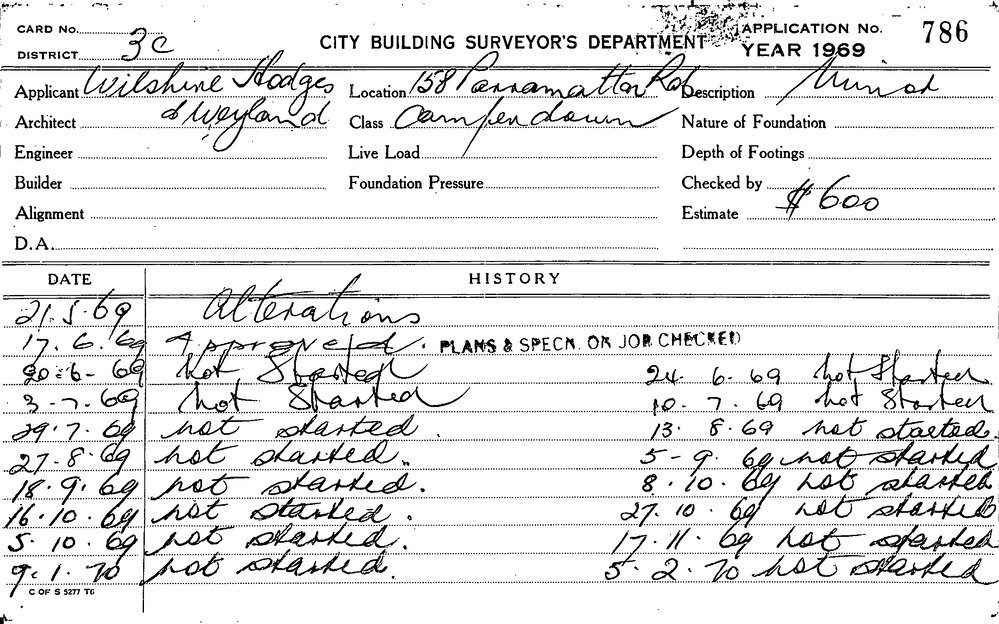 CARD No. APPLICATION No. 786
DISTRICT 3c CITY BUILDING SURVEYOR'S DEPARTMENT YEAR 1969
Applicant Wilshire Hodges Location 158 Parramatta Rd Description Minor
Architect & Weyland Class Camperdown Nature of Foundation
Engineer Live Load Depth of Footings
Builder Foundation Pressure Checked by
Alignment Estimate $600
D.A.
DATE HISTORY
21.5.69 Alterations
17.6.69 Approved. PLANS & SPECN. ON JOB CHECKED
20-6-69 Not Started 24.6.69 not Started
3-7.69 not Started 10.7.69 not Started
29.7.69 not started. 13.8.69 not started.
27-8.69 not started. 5-9.69 not started
18.9.69 not started. 8.10.69 not started
16.10.69 not started. 27.10.69 not started
5.10.69 not started. 17.11.69 not started
9.1.70 not started. 5.2.70 not started
C OF S 5277 TG